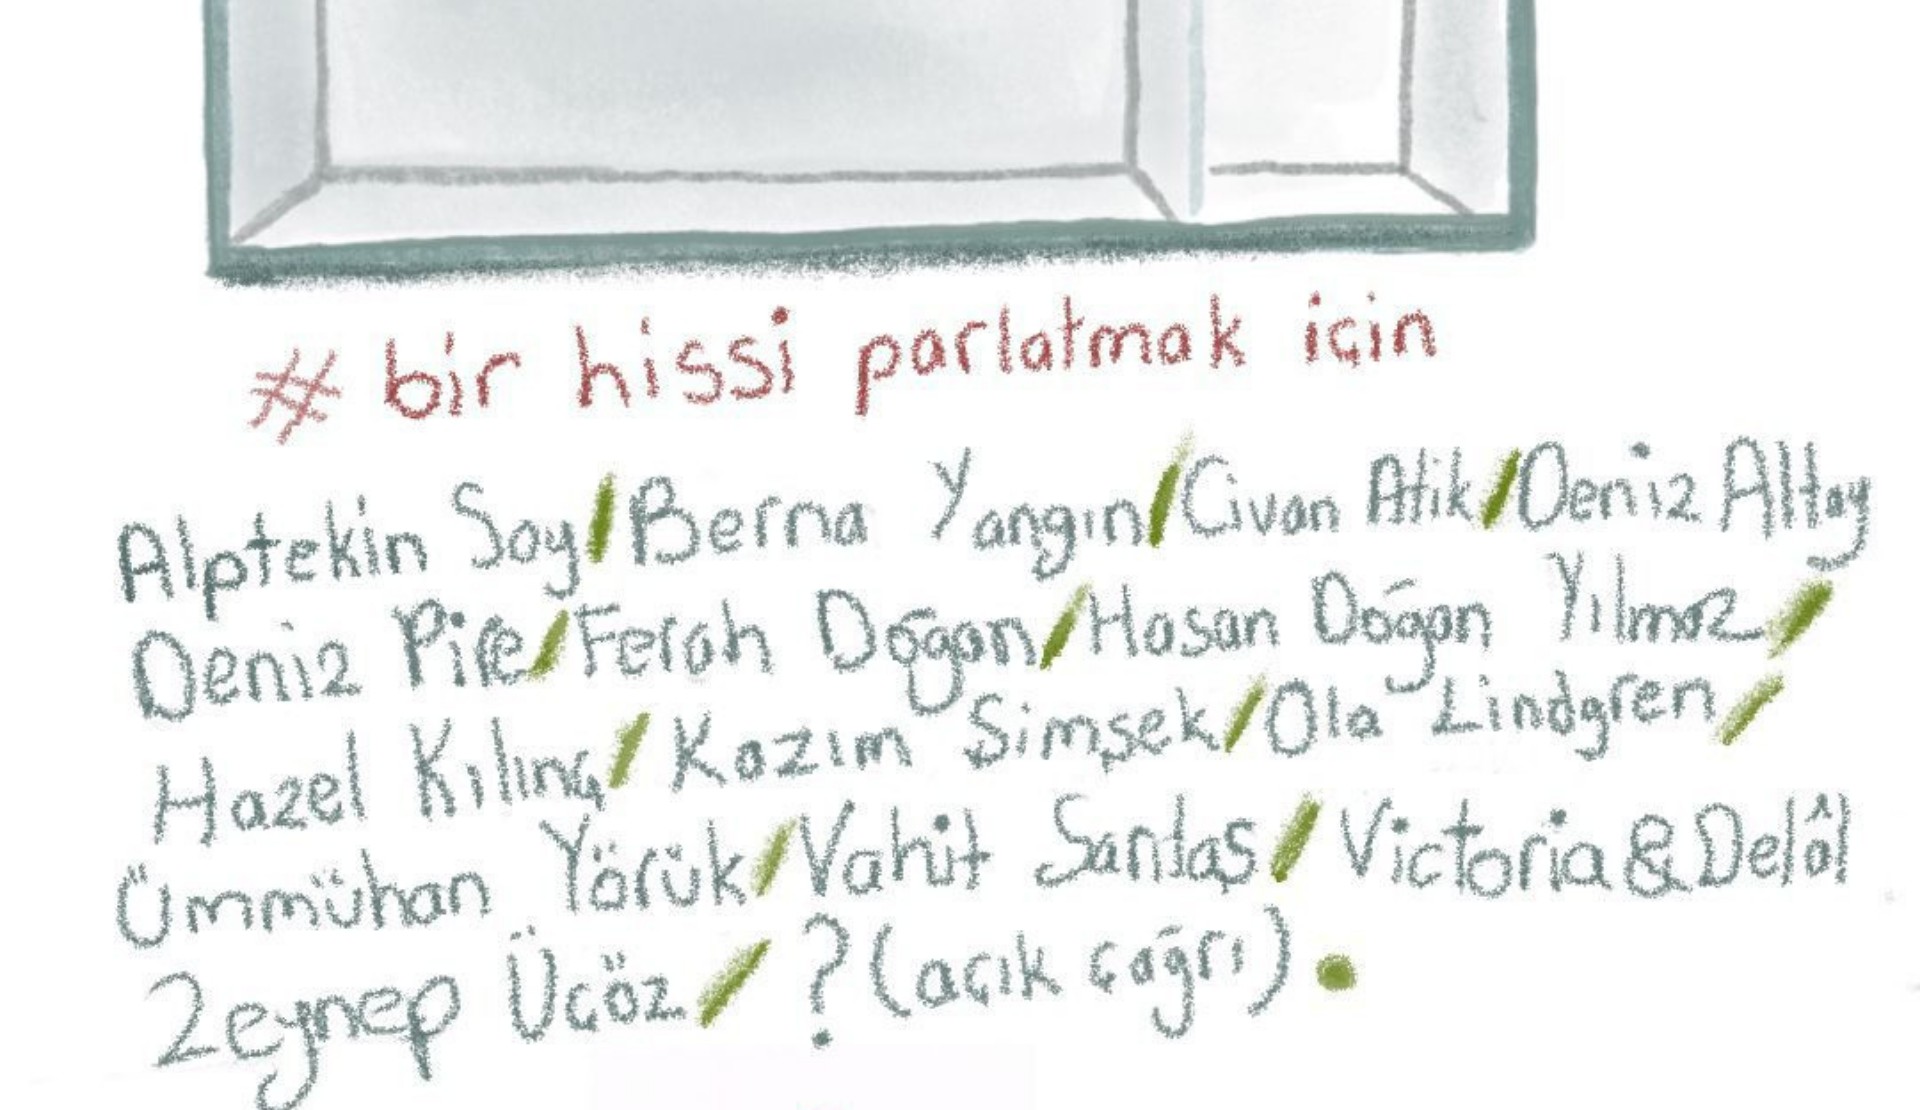 # bir hissi parlatmak için
Alptekin Soy/Berna Yangın/Civan Atik/Deniz Altay
Deniz Pire/Ferah Doğan/Hasan Doğan Yılmaz/
Hazel Kılınç/Kazım Şimşek/Ola Lindgren/
Ümmühan Yörük/Vahit Sarıtaş/Victoria&Delâl
Zeynep Üçöz/?(açık çağrı).